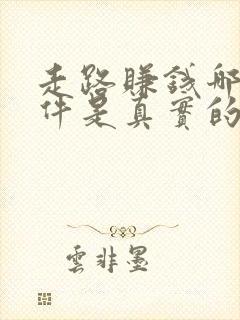 走路賺錢哪
件是真實的
雲非墨